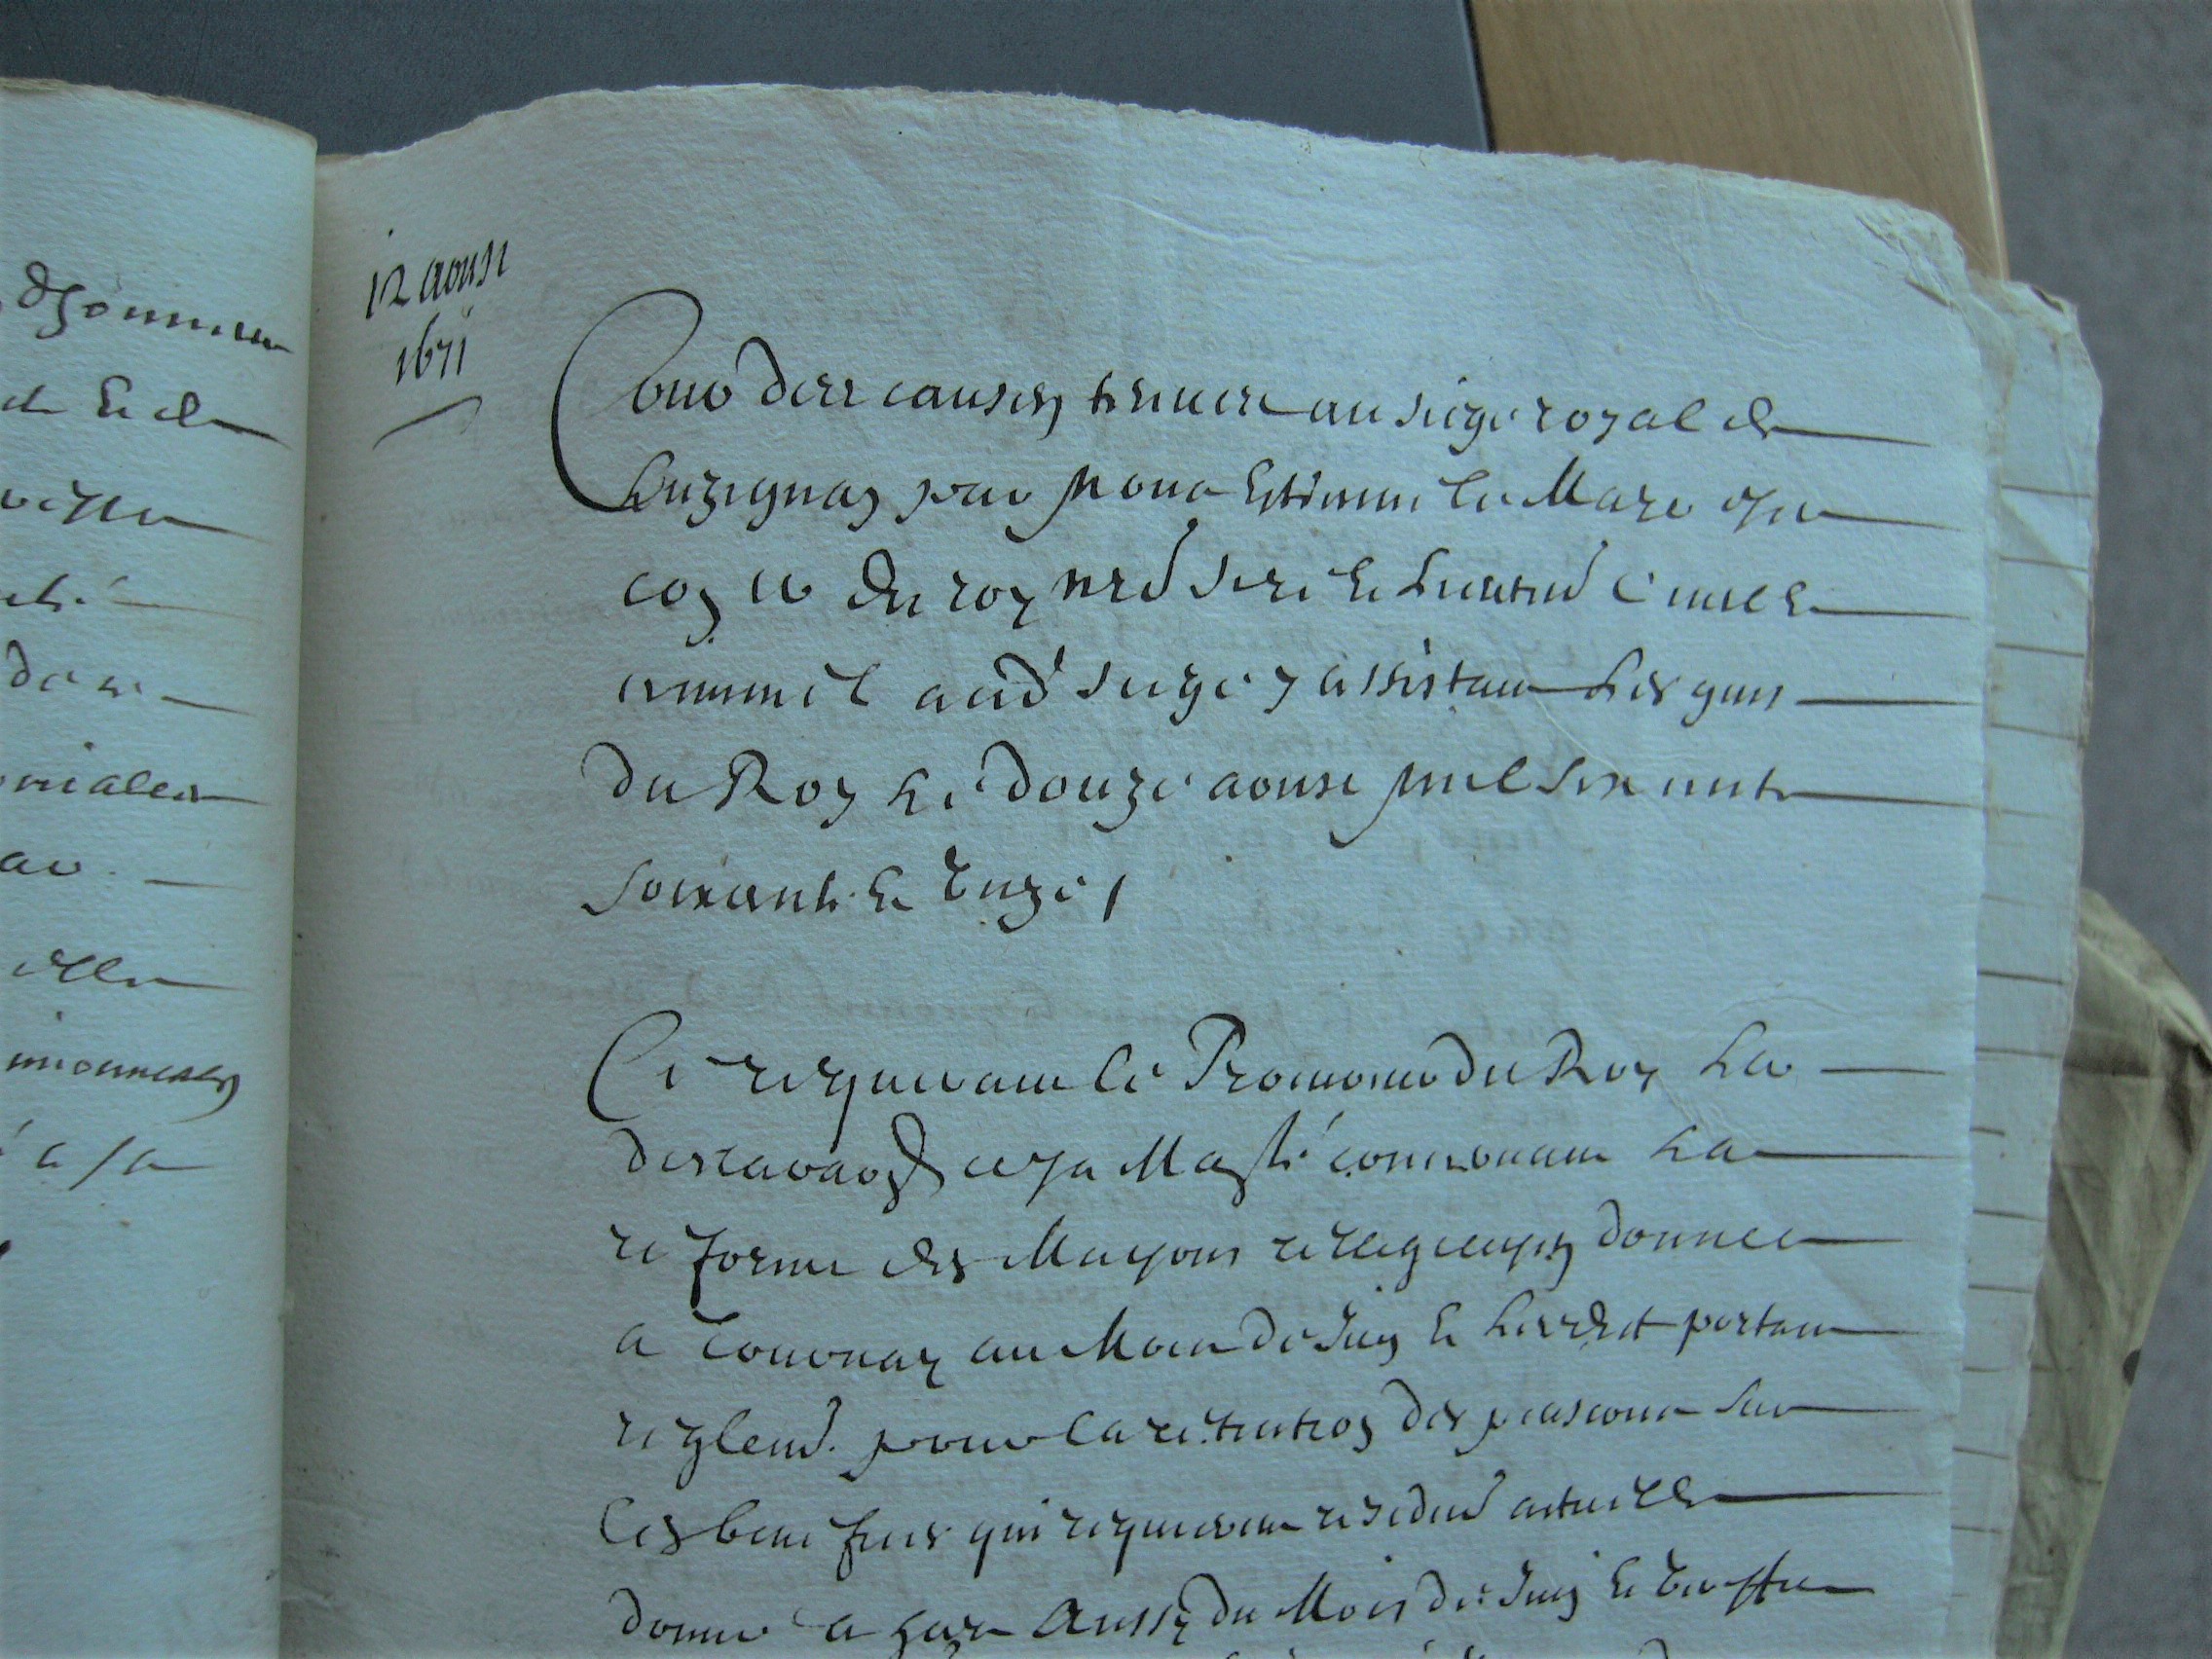 12 aoust
1671
Cour des causes tenue au siege royal de
Luzignan par nous Estienne le Maye
con.er du roy nred sire et Lieuten.d Civil et
criminel aud.t siege y assistans les gens
du Roy le douze aoust mil six cents
soixante et unze /
Ce requerant le Procureur du Roy La
declaraon de sa Ma.té concernant La
reforme des Maysons relligieuses donnee
a Tournay au Mois de Juin et Lesdict portant
reglem.t pour la retention des pensions sur
les benefices qui requierent residen.ce actuelle
donné a aussy du Mois de Juin
de
et
dere
niales
ar
elle
a sa